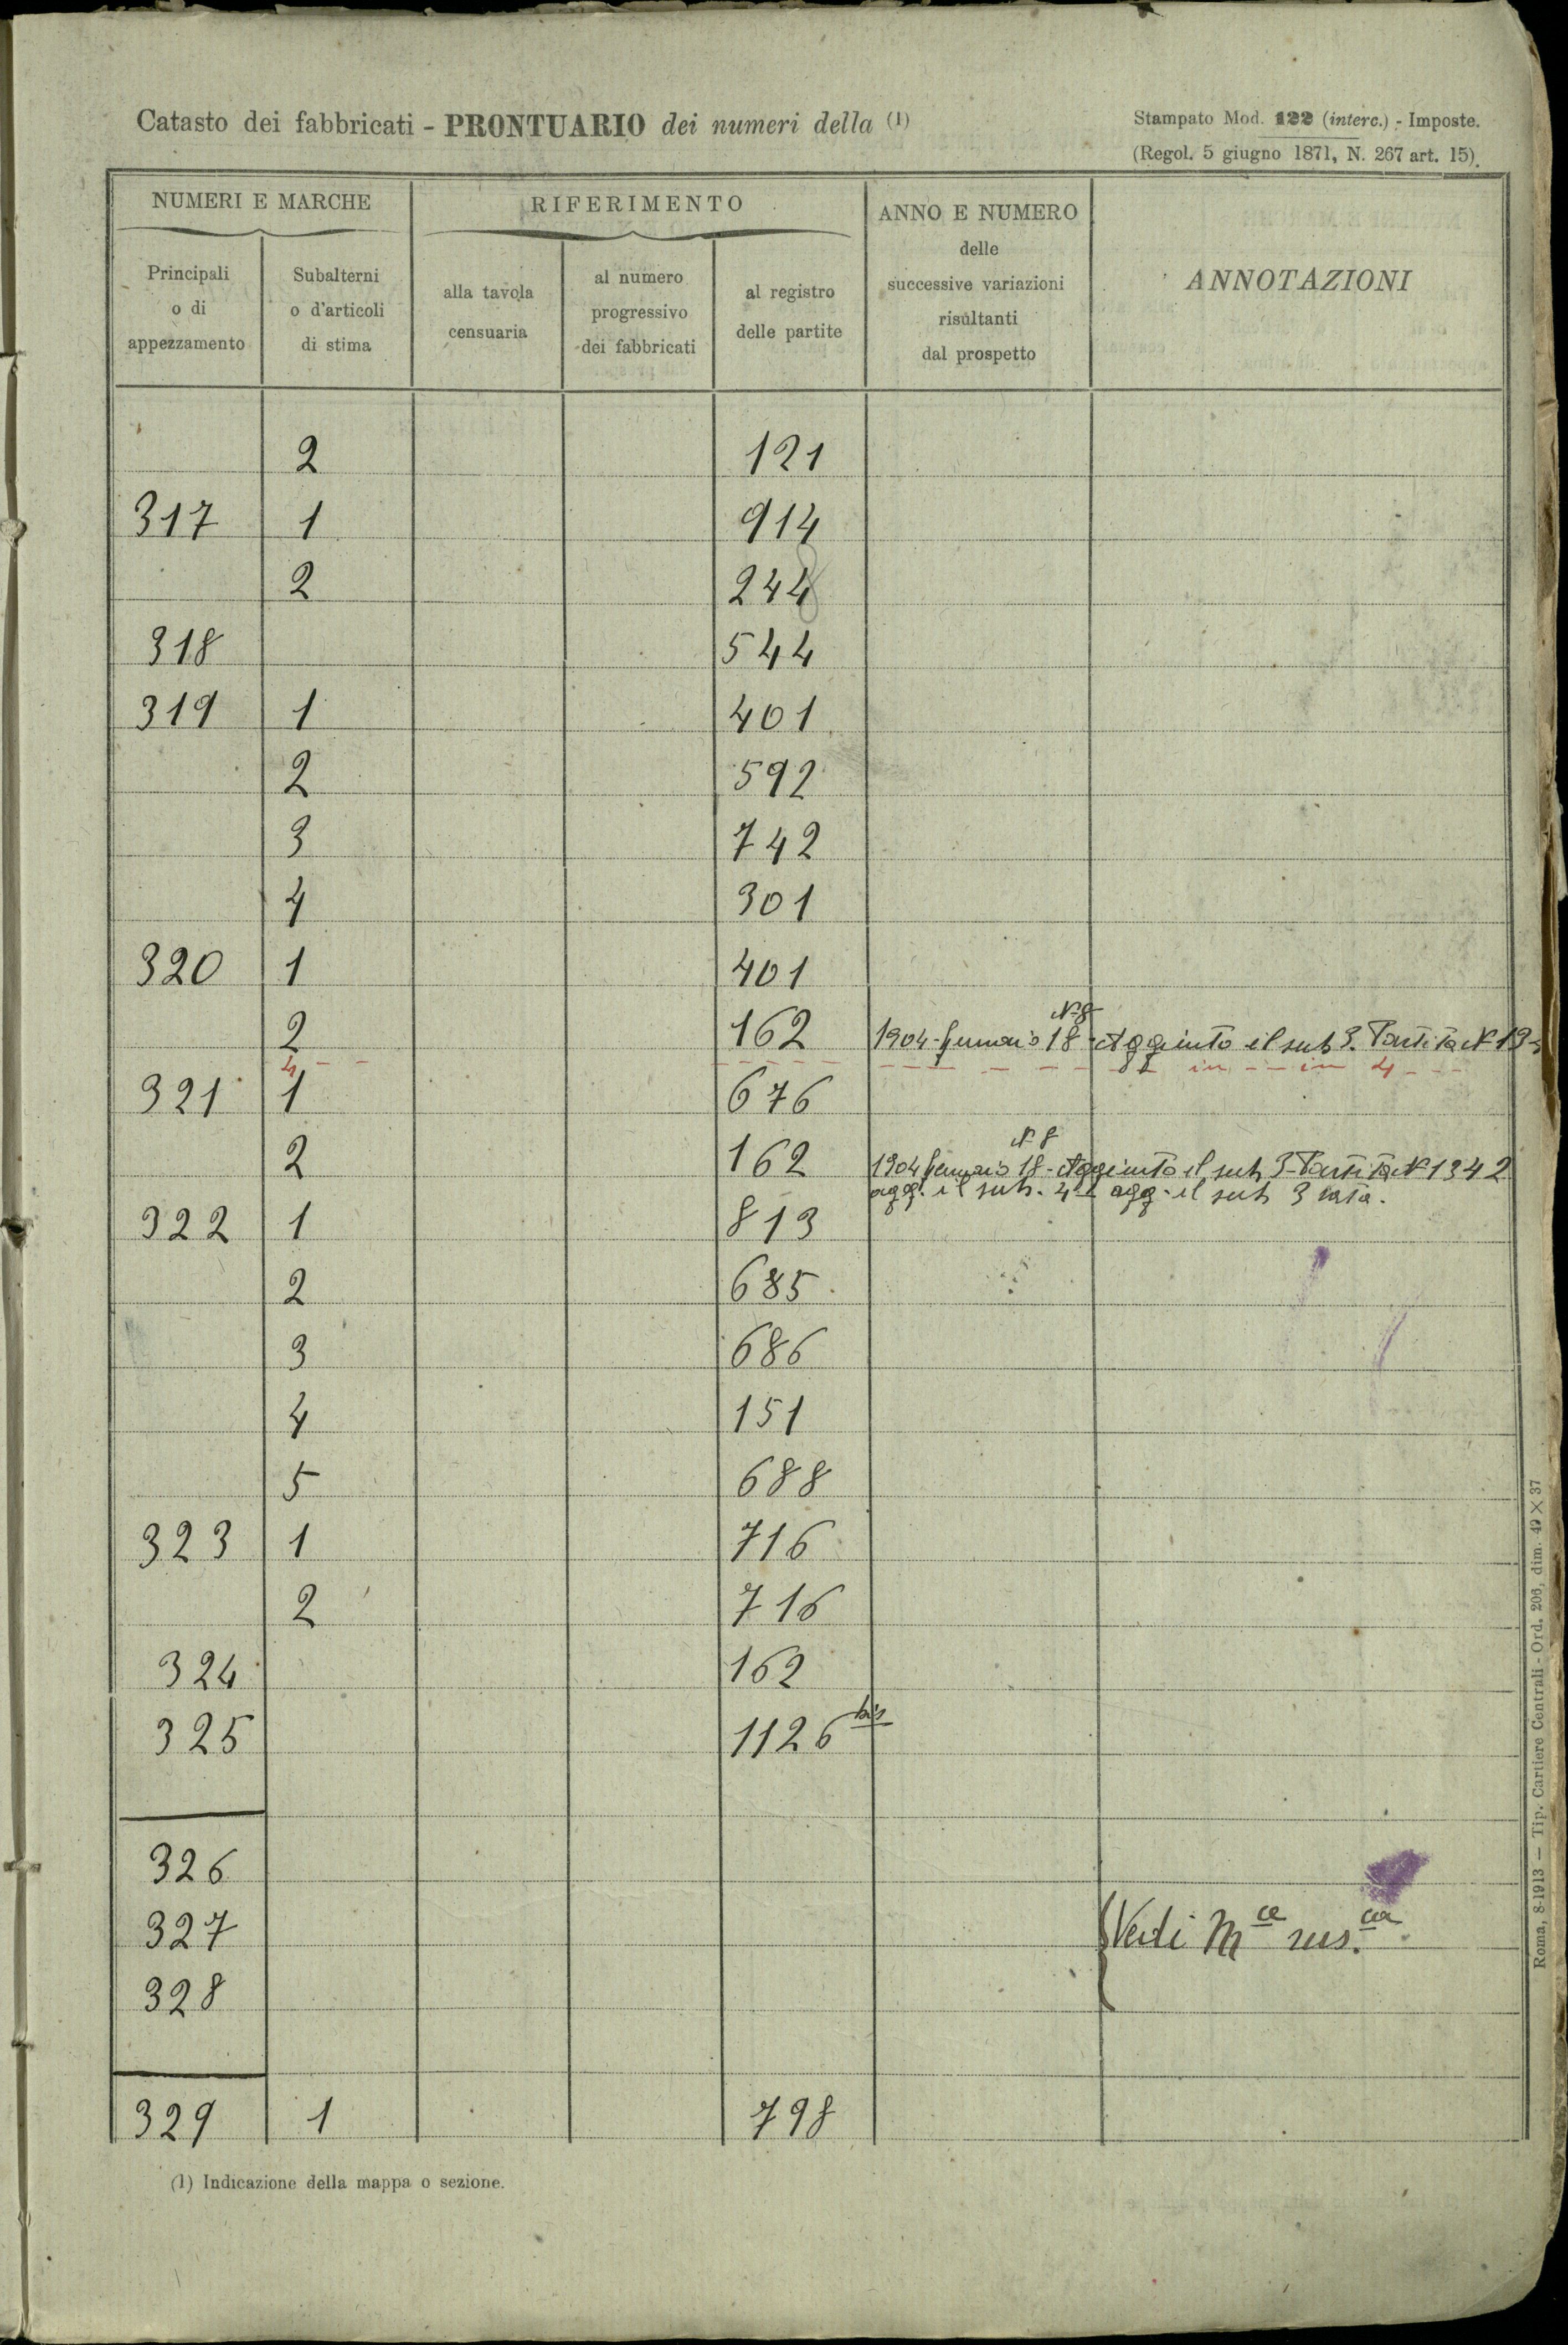 Catasto dei fabbricati - PRONTUARIO dei numeri della (1)
Stampato Mod. 122 (interc.) - Imposte.
(Regol. 5 giugno 1871, N. 267 art. 15).
NUMERI E MARCHE
RIFERIMENTO
ANNO E NUMERO
delle
successive variazioni
risultanti
dal prospetto
ANNOTAZIONI
Principali
o di
appezzamento
Subalterni
o d'articoli
di stima
alla tavola
censuaria
al numero
progressivo
dei fabbricati
al registro
delle partite
2 121
317 1 914
2 244
318 544
319 1 401
2 592
3 742
4 301
320 1 401
N° 8
2 162 1904 - Gennaio 18 - Aggiunto il sub 3. Partita N°
4 - - - in - - in 4 - - -
321 1 676
N° 8
2 162 1904 Gennaio 18 - Aggiunto il sub 3 - Partita N° 1342
agg. il sub. 4 agg. il sub 3
322 1 813
2 685
3 686
4 151
5 688
323 1 716
2 716
324 162
325 1126 bis
326
327 Vedi Mca sus.ca
328
329 1 798
(1) Indicazione della mappa o sezione.
Roma, 8-1913 — Tip. Cartiere Centrali - Ord. 206, dim. 49 × 37